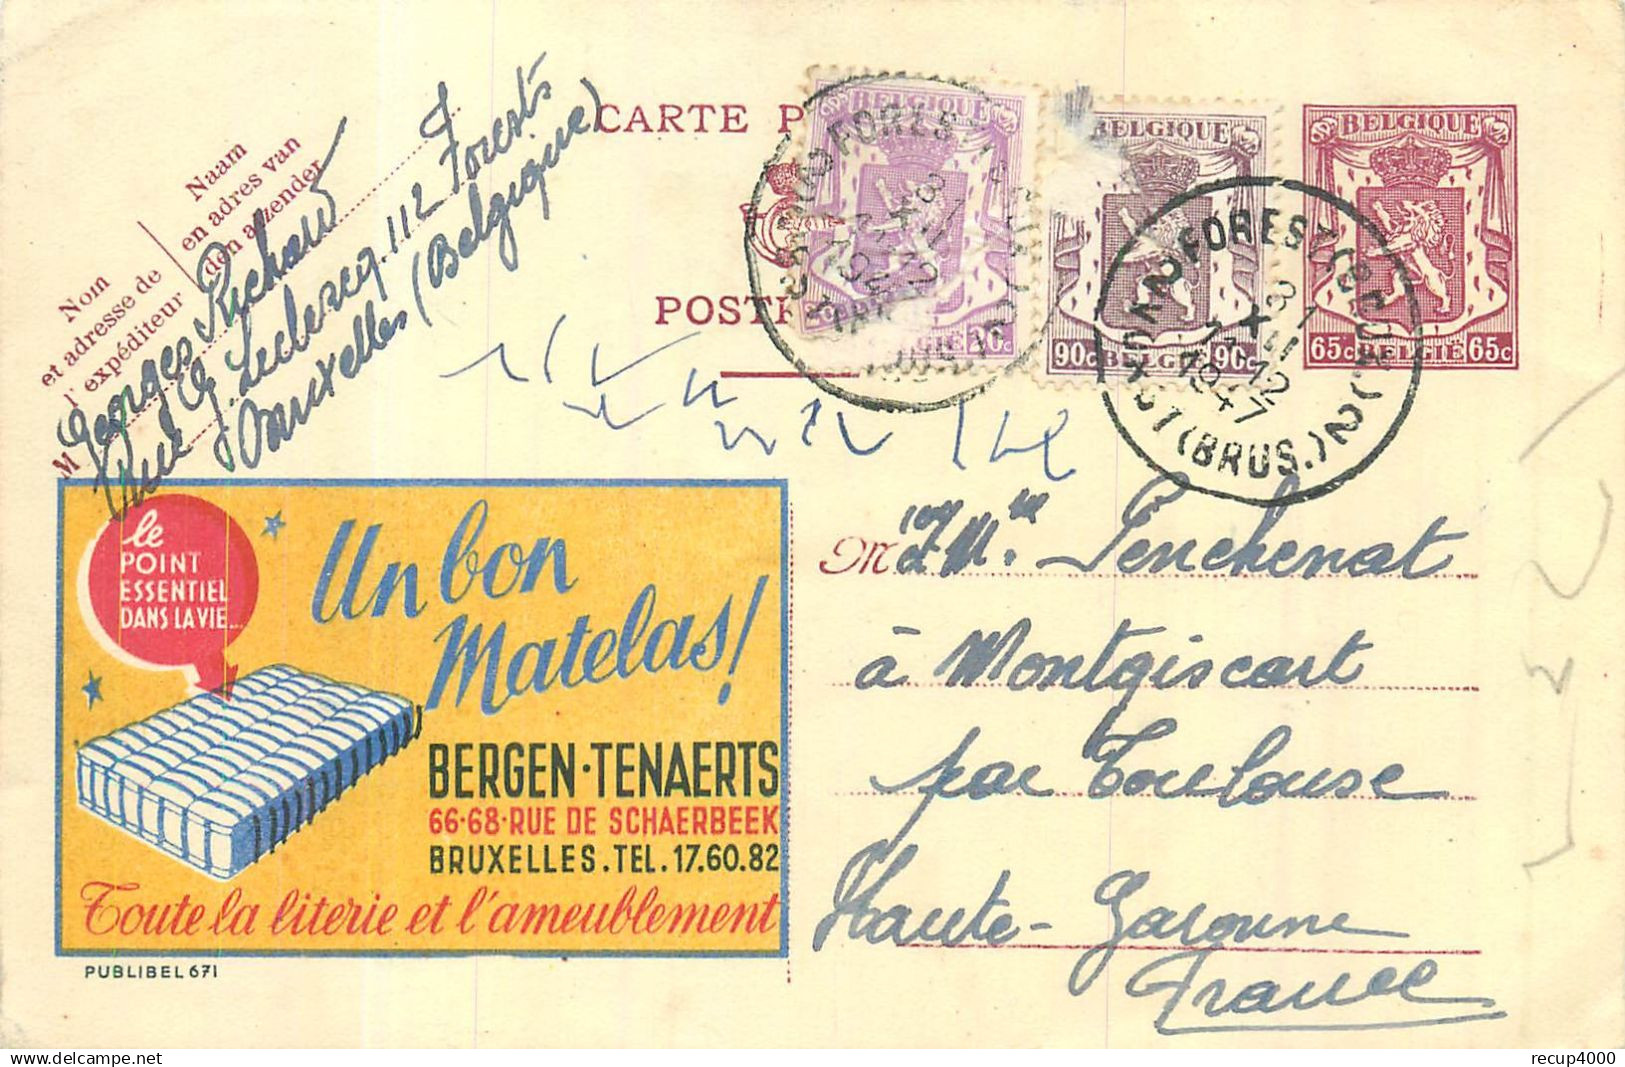 CARTE P
POSTK
Naam
en adres van
den afzender
Nom
et adresse de
l'expéditeur
M Georges Richard
Rue G. Leclercq 112 Forest
Bruxelles (Belgique)
BELGIQUE
20c
BELGIQUE
90c BELGIE 90c
BELGIQUE
65c BELGIE 65c
FOREST (BRUS.) 2
3 1
XII 12
1947
le
POINT
ESSENTIEL
DANS LA VIE...
Un bon
Matelas!
BERGEN·TENAERTS
66·68·RUE DE SCHAERBEEK
BRUXELLES.TEL.17.60.82
Toute la literie et l'ameublement
PUBLIBEL 671
M Penchenat
à Montgiscart
par Toulouse
Haute-Garonne
France
recup4000